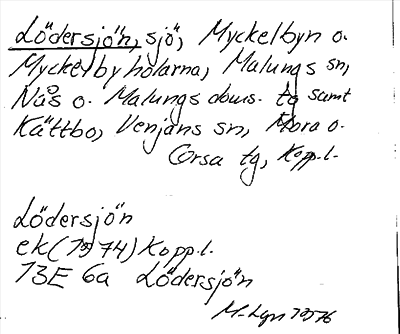 Lödersjön, sjö, Myckelbyn o.
Myckelbyholarna, Malungs sn,
Nås o. Malungs doms. tg samt
Kättbo, Venjans sn, Mora o.
Orsa tg, Kopp.l.
Lödersjön
ek (1974) Kopp.l.
13E 6a Lödersjön
M-Lgn 1976